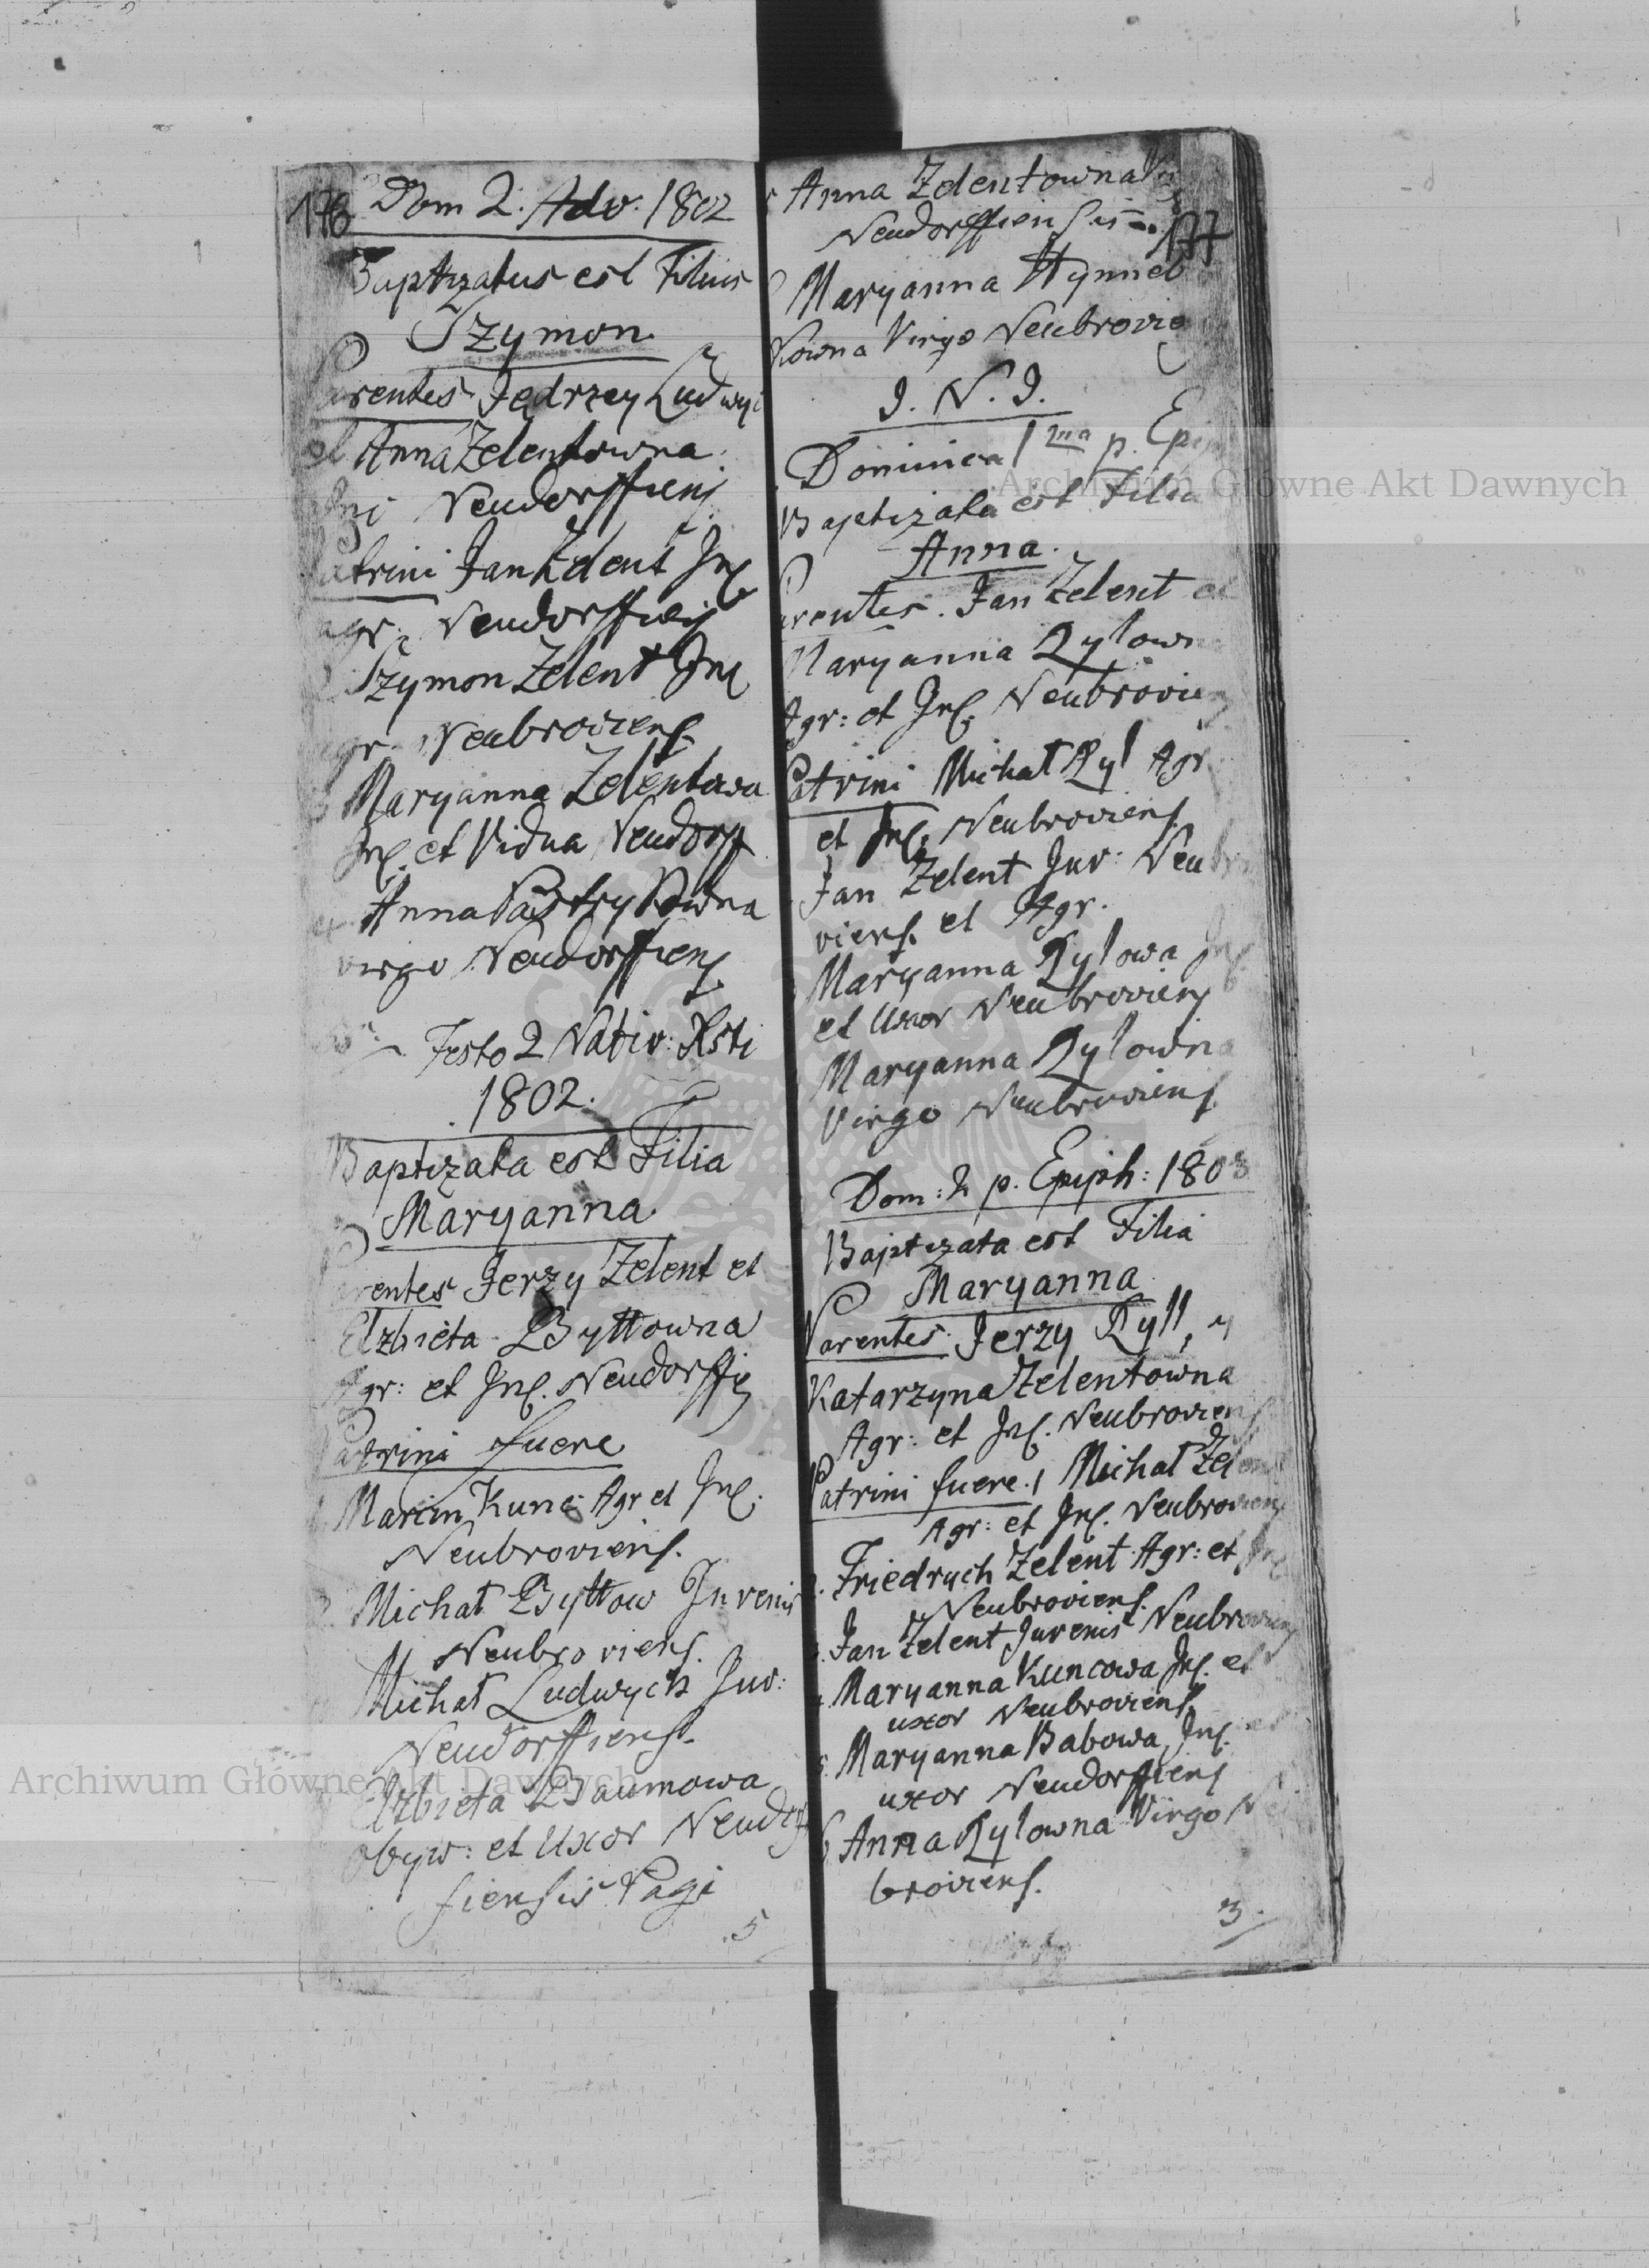 176 Dom 2. Adv. 1802
Baptizatus est Filius
Szymon
Parentes Jędrzey Ludwyc
et Anna Zelentowna
Neudorffiens
Patrini Jan Zelent Inc
agr: Neudorffiens
Szymon Zelent Inc
agr. Neubroviens
Maryanna Zelentowa
Inc. et Vidua Neudorff
Anna
virgo Neudorffiens
Festo 2 Nativ: Xsti
1802.
Baptizata est Filia
Maryanna
Parentes Jerzy Zelent et
Elzbieta Byttowna
Agr: et Inc. Neudorffie
Patrini fuere
Marcin Kunc Agr et Inc.
Neubroviens.
Michał Byttow Juvenis
Neubroviens.
Michał Ludwych Juv:
Neudorffiens.
Elzbieta Baumowa
Obyw: et Uxor Neudorf
fiensis Pagi
5
Anna Zelentowna
Neudorffiensis 177
Maryanna Hynneb
kowna Virgo Neubrovie
J. N. J.
Dominica 1ma p. Epip
Baptizata est Filia
Anna.
Parentes. Jan Zelent et
Maryanna Rylown
Agr: et Inc. Neubrovien
Patrini Michał Ryl Agr
et Inc. Neubroviens
Jan Zelent Juv: Neubro
viens. et Agr.
Maryanna Rylowa Inc
et Uxor Neubroviens
Maryanna Rylowna
Virgo Neubroviens
Dom: 2 p. Epiph: 1803
Baptizata est Filia
Maryanna
Parentes. Jerzy Ryll, y
Katarzyna Zelentowna
Agr: et Inc. Neubroviens
Patrini fuere. 1 Michał Zelent
Agr: et Inc. Neubroviens
Friedrych Zelent Agr: et Inc
Neubroviens.
Jan Zelent Juvenis Neubroviens
Maryanna Kuncowa Inc. et
uxor Neubroviens
Maryanna Babowa, Inc. et
uxor Neudorffiens
6 Anna Rylowna Virgo Neu
broviens.
3
Archiwum Główne Akt Dawnych
Archiwum Główne Akt Dawnych